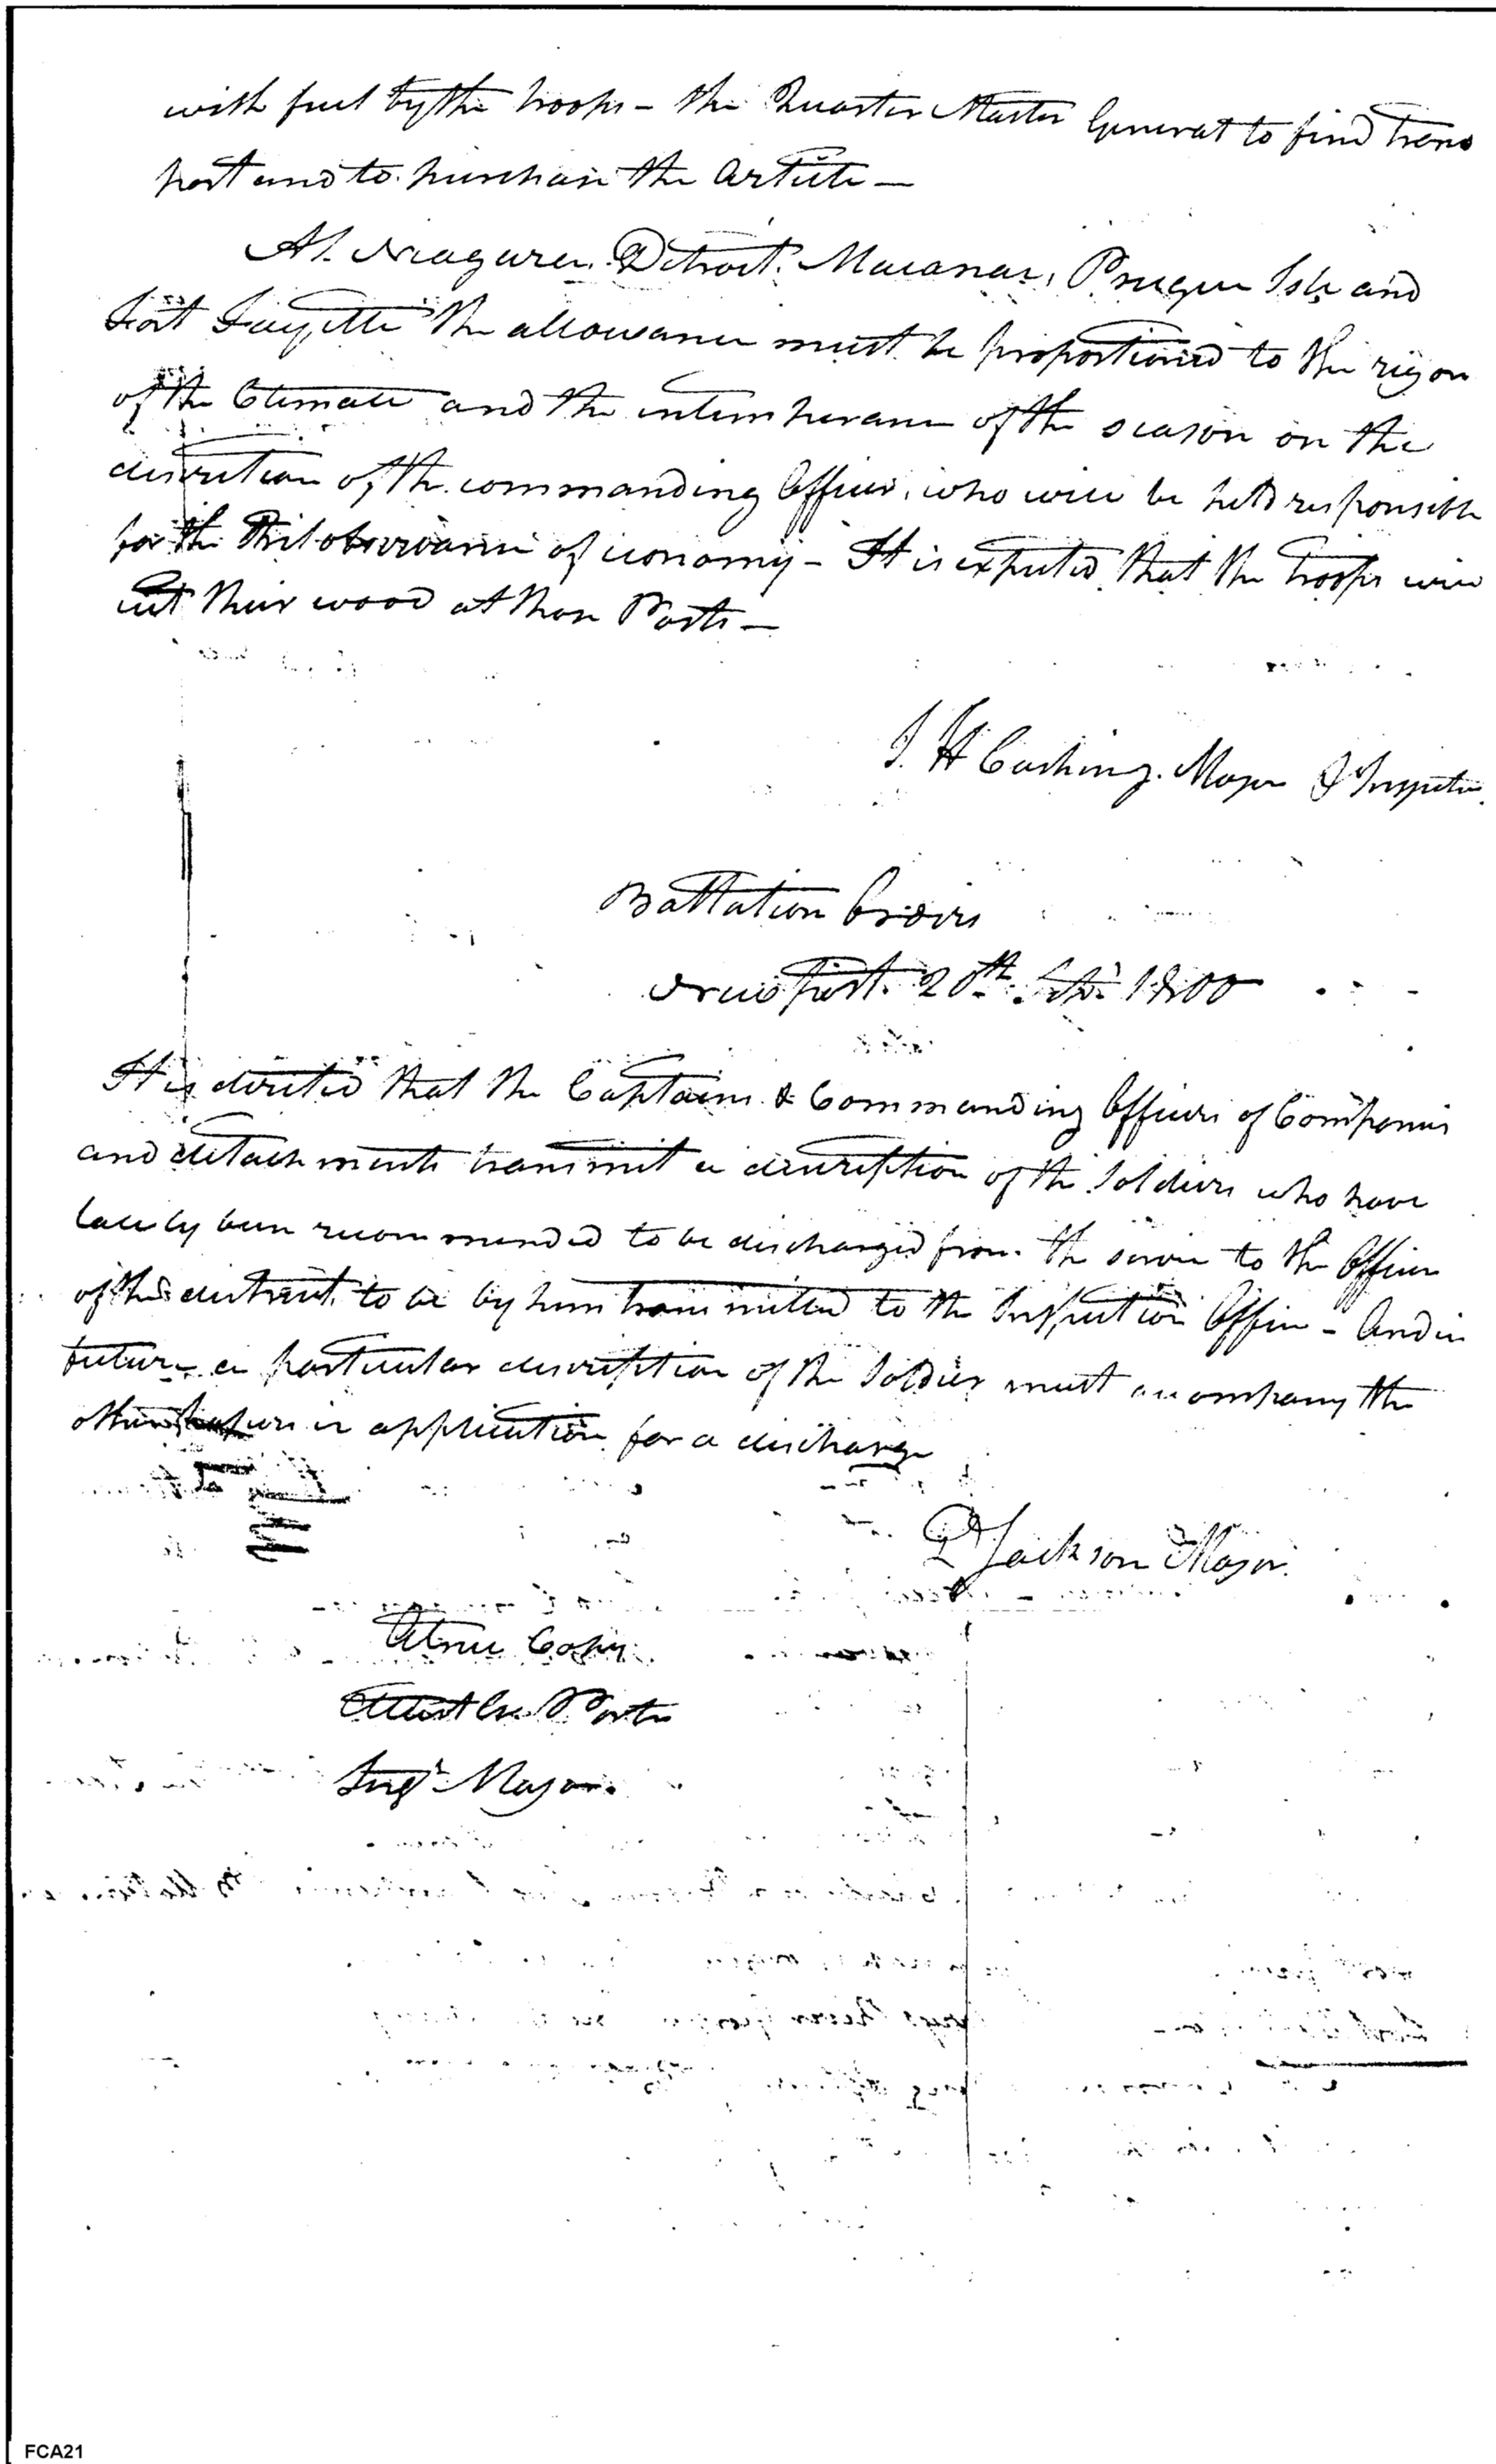 with fuel by the troops - the Quarter Master General to find trans
port and to purchase the Article -
At Niagara. Detroit. Macanac, Presque Isle and
Fort Fayette the allowance must be proportioned to the rigor
of the Climate and the intemperance of the season on the
discretion of the commanding Officer, who will be held responsible
for the observance of economy - It is expected that the troops will
cut their wood at those Posts -
T. H Cushing. Major & Inspector
Battalion Orders
New port. 20th Sepr. 1800
It is directed that the Captains & Commanding Officers of Companies
and detachments transmit a description of the Soldiers who have
lately been recommended to be discharged from the service to the Officer
of the district, to be by him transmitted to the Inspection Office - And in
future a particular description of the Soldier must accompany the
other in application for a discharge
D Jackson Major.
A true Copy
Attest Porter
Sergt. Major.
FCA21